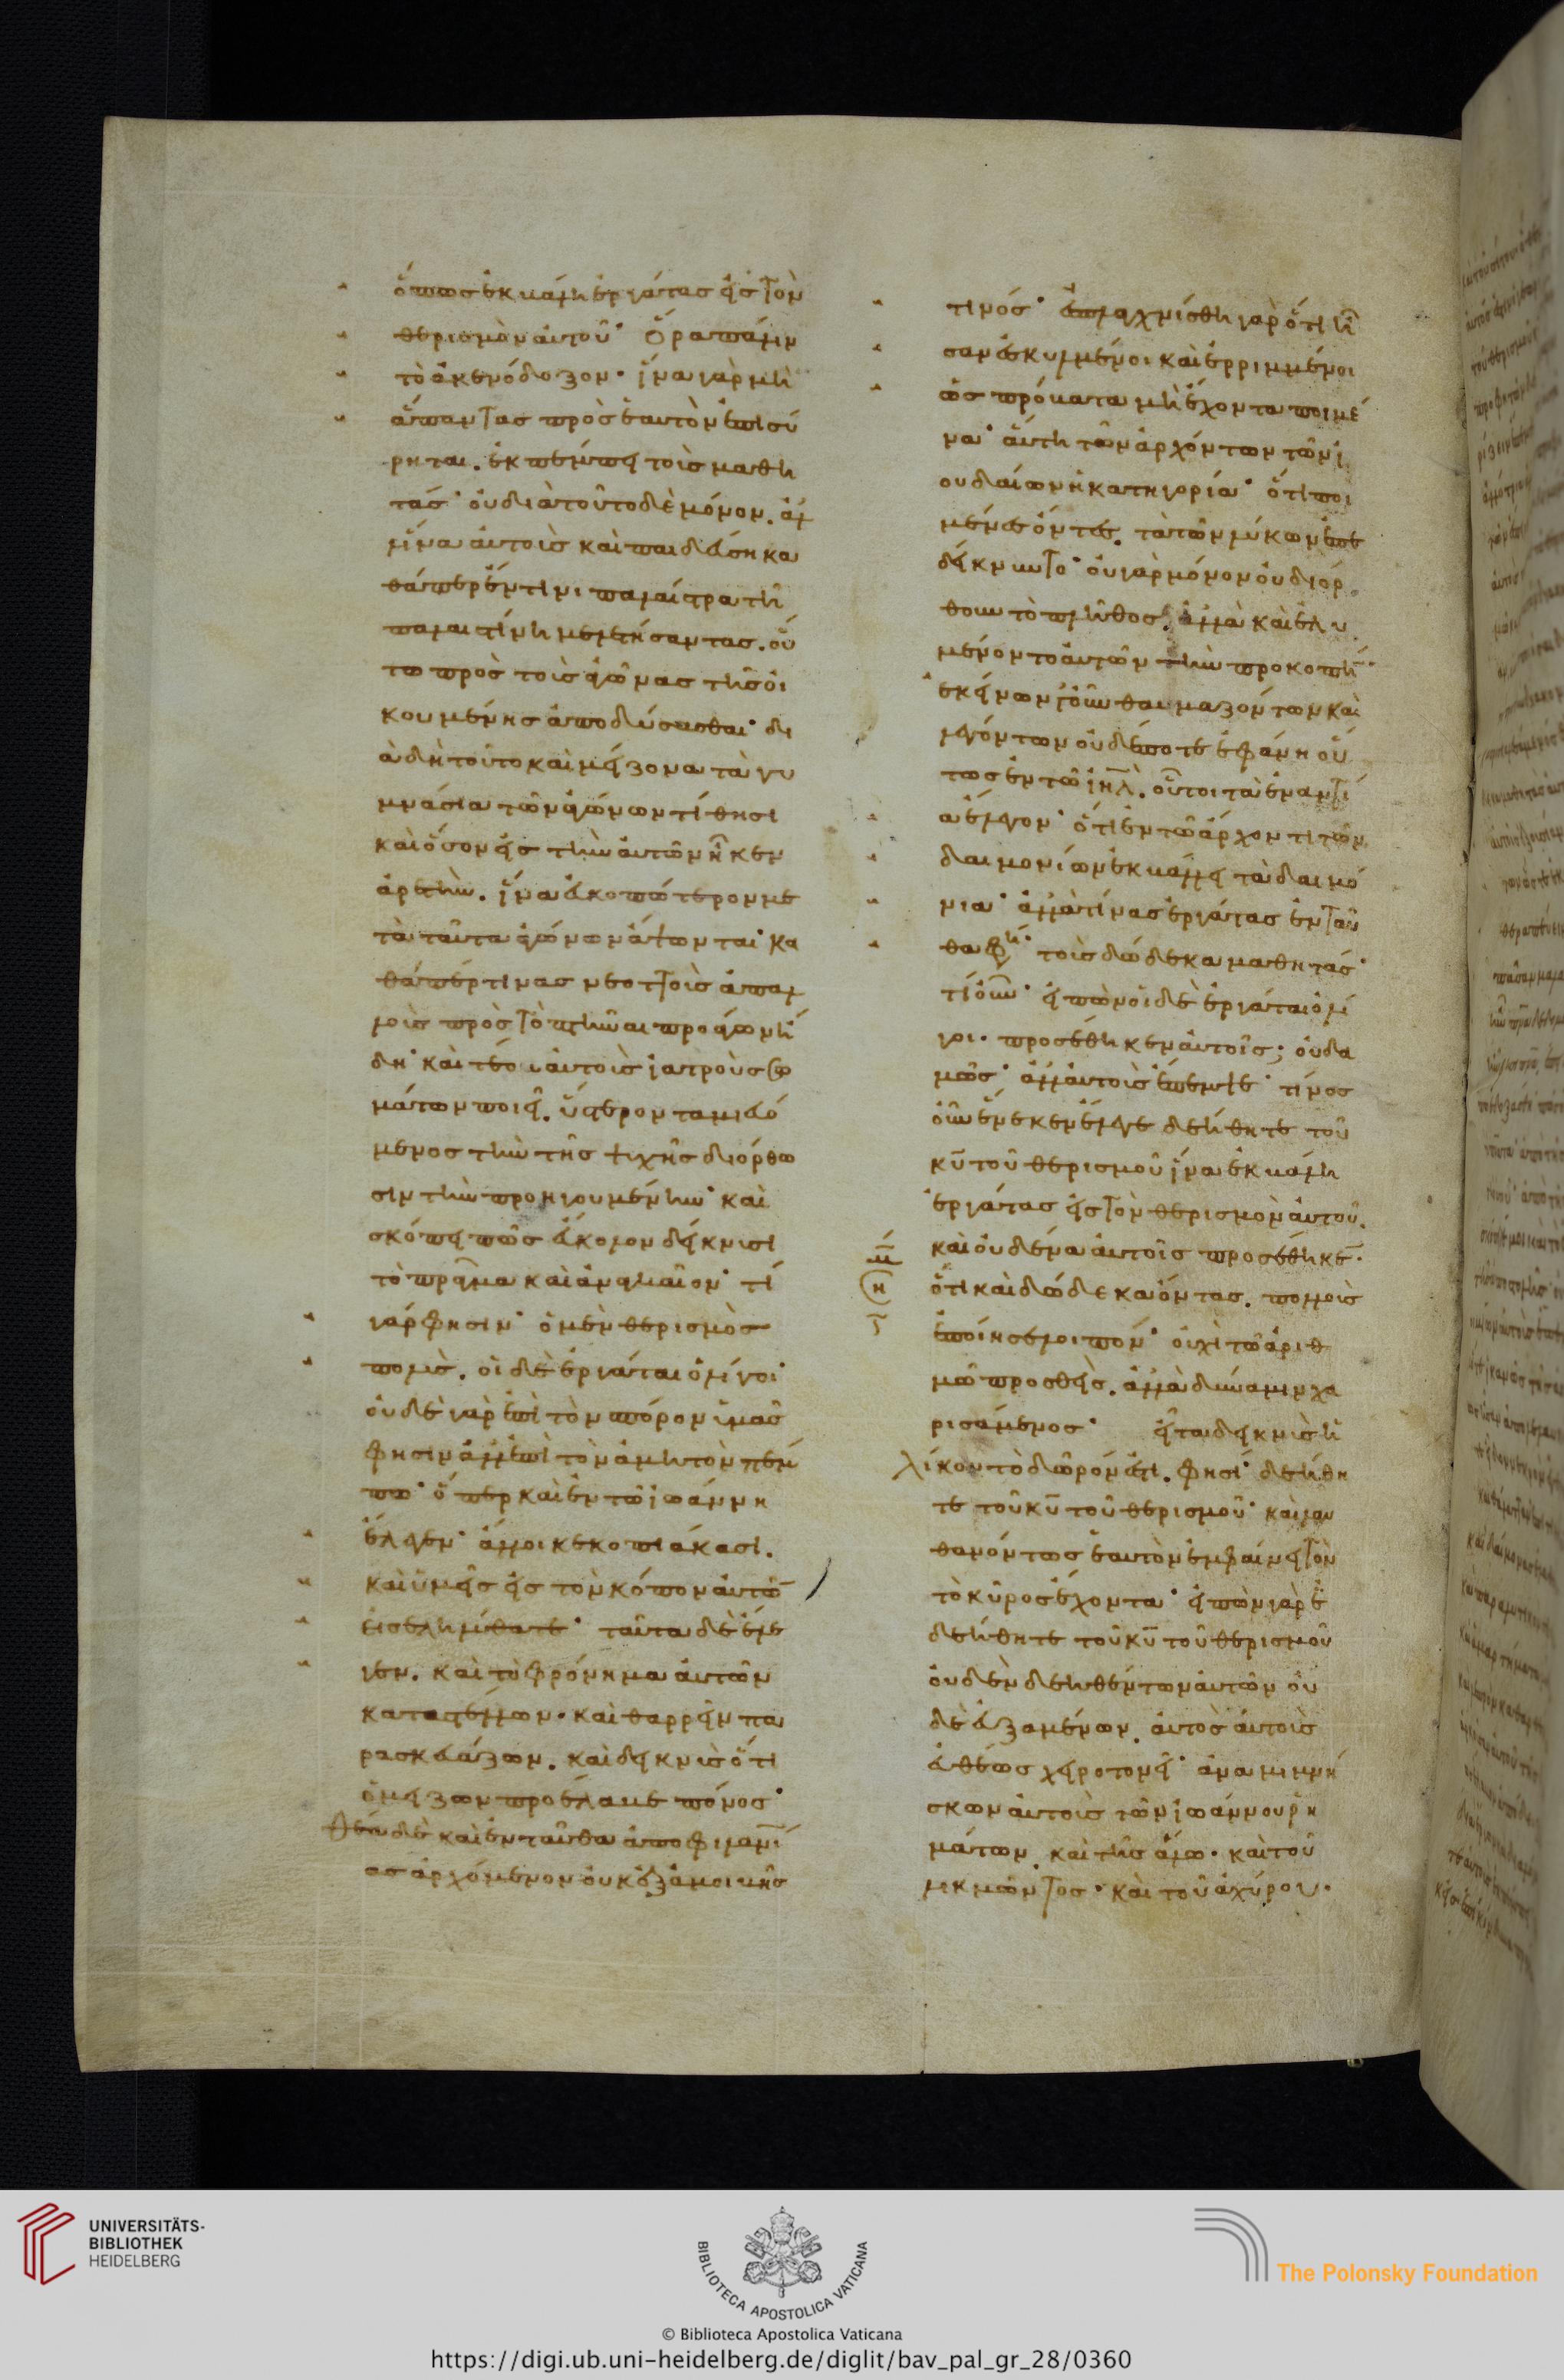 ὅπως ἐκβάλη ἐργάτας εἰς τὸν
θερισμὸν αὐτοῦ· Ὅρα πάλιν
τὸ ἀκενόδοξον· ἵνα γὰρ μὴ
ἅπαντας πρὸς ἑαυτὸν ἐπισύ
ρηται. ἐκπέμπει τοὺς μαθη
τάς· οὐ διὰ τοῦτο δὲ μόνον. ἀλ
λ ἵνα αὐτοὺς καὶ παιδεύση κα
θάπερ ἔν τινι παλαίστρα τῆ
παλαιστίνη μελετήσαντας. οὕ
τω πρὸς τοὺς ἀγῶνας τῆς οἰ
κουμένης ἀποδύσασθαι· δι
ὰ δὴ τοῦτο καὶ μείζονα τὰ γυ
μνάσια τῶν ἀγώνων τίθησι
καὶ ὅσον εἰς τὴν αὐτῶν ἧκεν
ἀρετὴν. ἵνα εὐκοπώτερον με
τὰ ταῦτα ἀγώνων ἅψωνται· κα
θάπέρ τινας νεοττοὺς ἁπαλ
λοὺς πρὸς τὸ πτῆναι προάγων ἤ
δη· καὶ τέως αὐτοὺς ἰατροὺς σω
μάτων ποιεῖ. ὕστερον ταμιευό
μενος τὴν τῆς ψυχῆς διόρθω
σιν τὴν προηγουμένην· καὶ
σκόπει πῶς εὔκολον δείκνυσι
τὸ πρᾶγμα καὶ ἀναγκαῖον· τί
γάρ φησιν· ὁ μὲν θερισμὸς
πολὺς. οἱ δὲ ἐργάται ὀλίγοι·
οὐδὲ γὰρ ἐπὶ τὸν σπόρον ὑμᾶς
φησιν ἀλλ ἐπὶ τὸν ἀμητὸν πέμ
πω· ὅπερ καὶ ἐν τῶ ἰωάννη
ἔλεγεν· ἄλλοι κεκοπιάκασι.
καὶ ὑμεῖς εἰς τὸν κόπον αὐτῶ̅
εἰσεληλύθατε· ταῦτα δὲ ἔλε
γεν. καὶ τὸ φρόνημα αὐτῶν
καταστέλλων· καὶ θαρρεῖν πα
ρασκευάζων. καὶ δεικνὺς ὅτι
ὁ μείζων προέλαβε πόνος·
Θέα δὲ καὶ ἐνταῦθα ἀπὸ φιλαν̅ί
ας ἀρχόμενον οὐκ ἐξ ἀμοιβῆς
τινός· ἐσπλαχνίσθη γὰρ ὅτι ἦ
σαν ἐσκυλμένοι καὶ ἐρριμμένοι
ὡς πρόβατα μὴ ἔχοντα ποιμέ
να· αὕτη τῶν ἀρχόντων τῶν ἰ
ουδαίων ἡ κατηγορία· ὅτι ποι
μένες ὄντες. τὰ τῶν λύκων ἐπε
δείκνυντο· οὐ γὰρ μόνον οὐ διόρ
θουν τὸ πλῆθος. ἀλλὰ καὶ ἐλυ
μαίνοντο αὐτῶν τὴν προκοπὴ̅·
ἐκείνων γοῦν θαυμαζόντων καὶ
λεγόντων οὐδέποτε ἐφάνη οὕ
τως ἐν τῶ ι̅η̅λ̅. οὗτοι τὰ ἐναντί
α ἔλεγον· ὅτι ἐν τῶ ἄρχοντι τῶν
δαιμονίων ἐκβάλλει τὰ δαιμό
νια· ἀλλὰ τίνας ἐργάτας ἐνταῦ
θα φη· τοὺς δώδεκα μαθητάς·
τί οὖν· εἰπὼν οἱ δὲ ἐργάται ὀλί
γοι. προσέθηκεν αὐτοῖς; οὐδα
μῶς· ἀλλ αὐτοὺς ἔπεμψε· τίνος
οὖν ἕνεκεν ἔλεγε δεήθητε τοῦ
κ̅υ̅ τοῦ θερισμοῦ ἵνα ἐκβάλη
ἐργάτας εἰς τὸν θερισμὸν αὐτοῦ.
καὶ οὐδένα αὐτοῖς προσέθηκε̅·
ὅτι καὶ δώδεκα ὄντας. πολλοὺς
ἐποίησε λοιπόν· οὐχὶ τῶ ἀριθ
μῶ προσθεὶς. ἀλλὰ δύναμιν χα
ρισάμενος· εἶτα δεικνὺς ἡ
λίκον τὸ δῶρόν ἐστι. φησί· δεήθη
τε τοῦ κ̅υ̅ τοῦ θερισμοῦ· καὶ λαν
θανόντως ἑαυτὸν ἐμφαίνει τὸν
τὸ κῦρος ἔχοντα· εἰπὼν γὰρ
δεήθητε τοῦ κ̅υ̅ τοῦ θερισμοῦ
οὐδὲν δεηθέντων αὐτῶν οὐ
δὲ εὐξαμένων. αὐτὸς αὐτοὺς
εὐθέως χειροτονεῖ· ἀναμιμνή
σκων αὐτοὺς τῶν ἰωάννου ῥη
μάτων, καὶ τῆς ἅλω· καὶ τοῦ
λικμῶντος· καὶ τοῦ ἀχύρου.
UNIVERSITÄTS-
BIBLIOTHEK
HEIDELBERG
BIBLIOTECA APOSTOLICA VATICANA
The Polonsky Foundation
© Biblioteca Apostolica Vaticana
https://digi.ub.uni-heidelberg.de/diglit/bav_pal_gr_28/0360